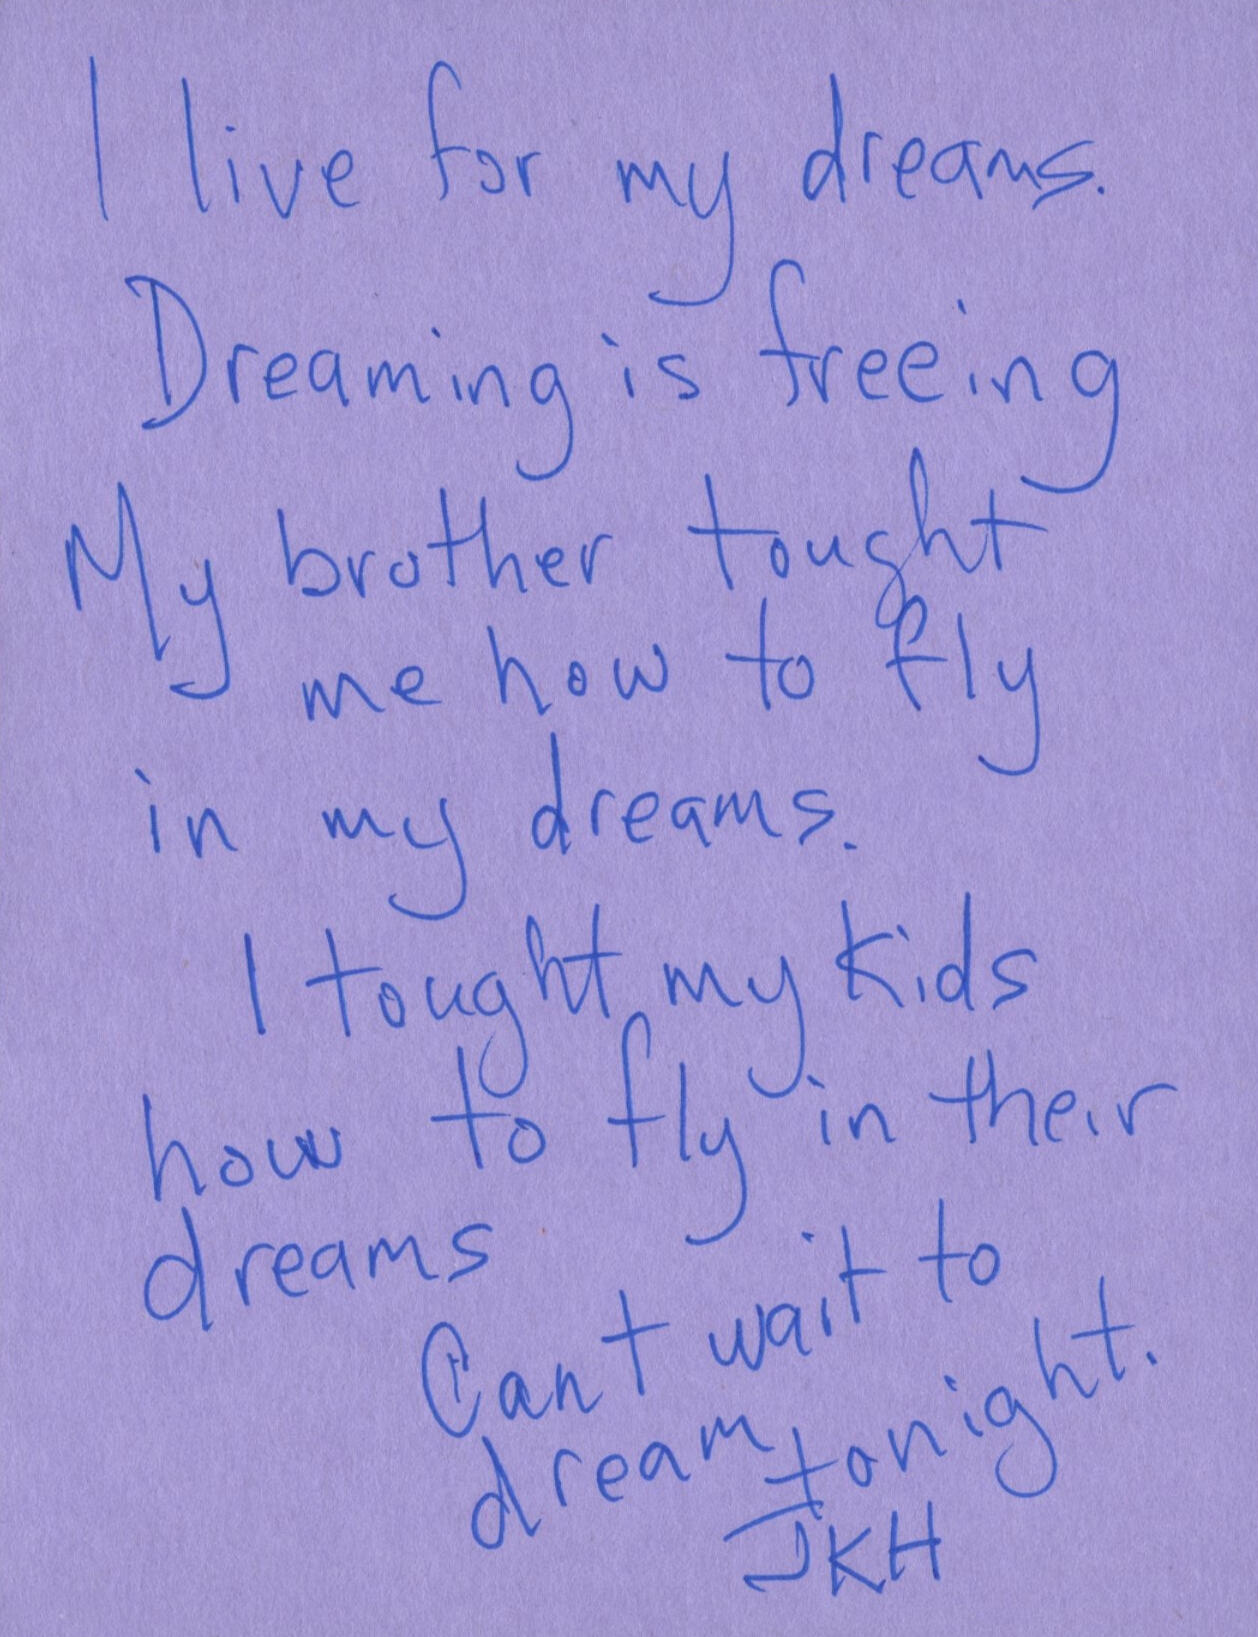 I live for my dreams.
Dreaming is freeing
My brother tought
me how to fly
in my dreams.
I tought my kids
how to fly in their
dreams
Can't wait to
dream tonight.
JKH